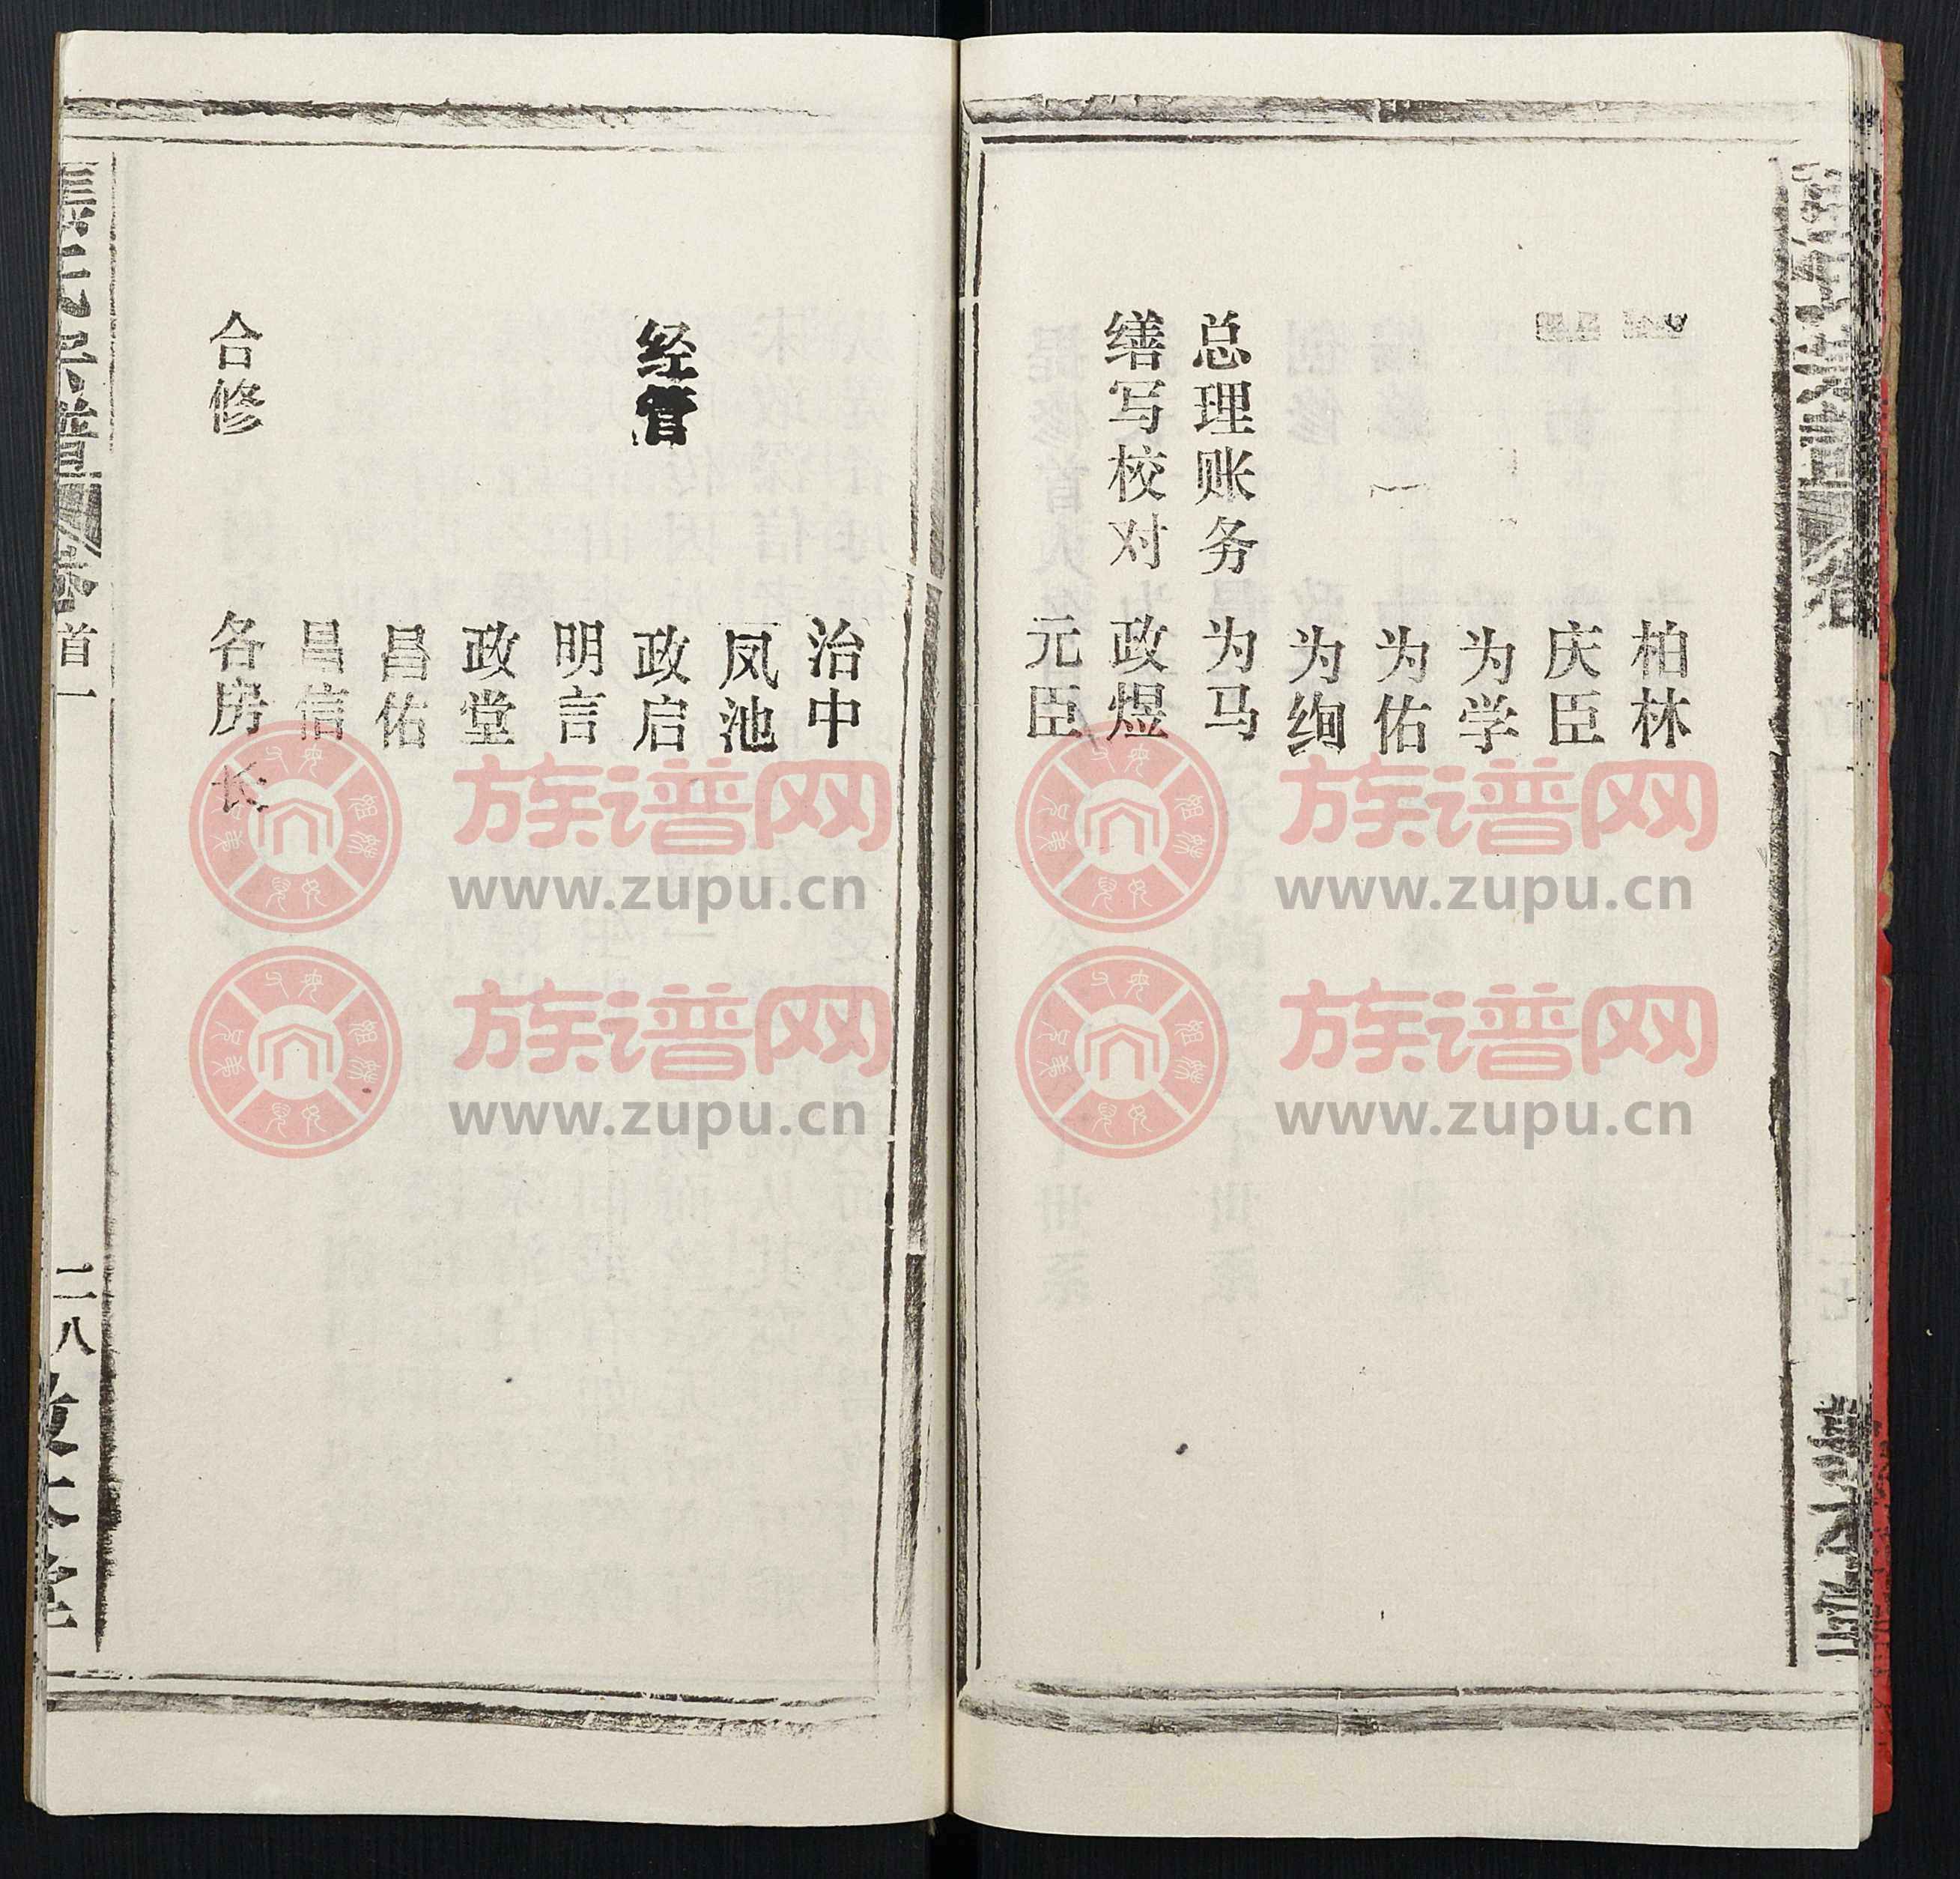 柏林
庆臣
为学
为佑
为绚
总理账务 为马
缮写校对 政煜
元臣
治中
凤池
经管 政启
明言
政堂
昌佑
昌信
合修 各房长
氏宗谱 卷首一 二八
族谱网
www.zupu.cn
族谱网
www.zupu.cn
族谱网
www.zupu.cn
族谱网
www.zupu.cn